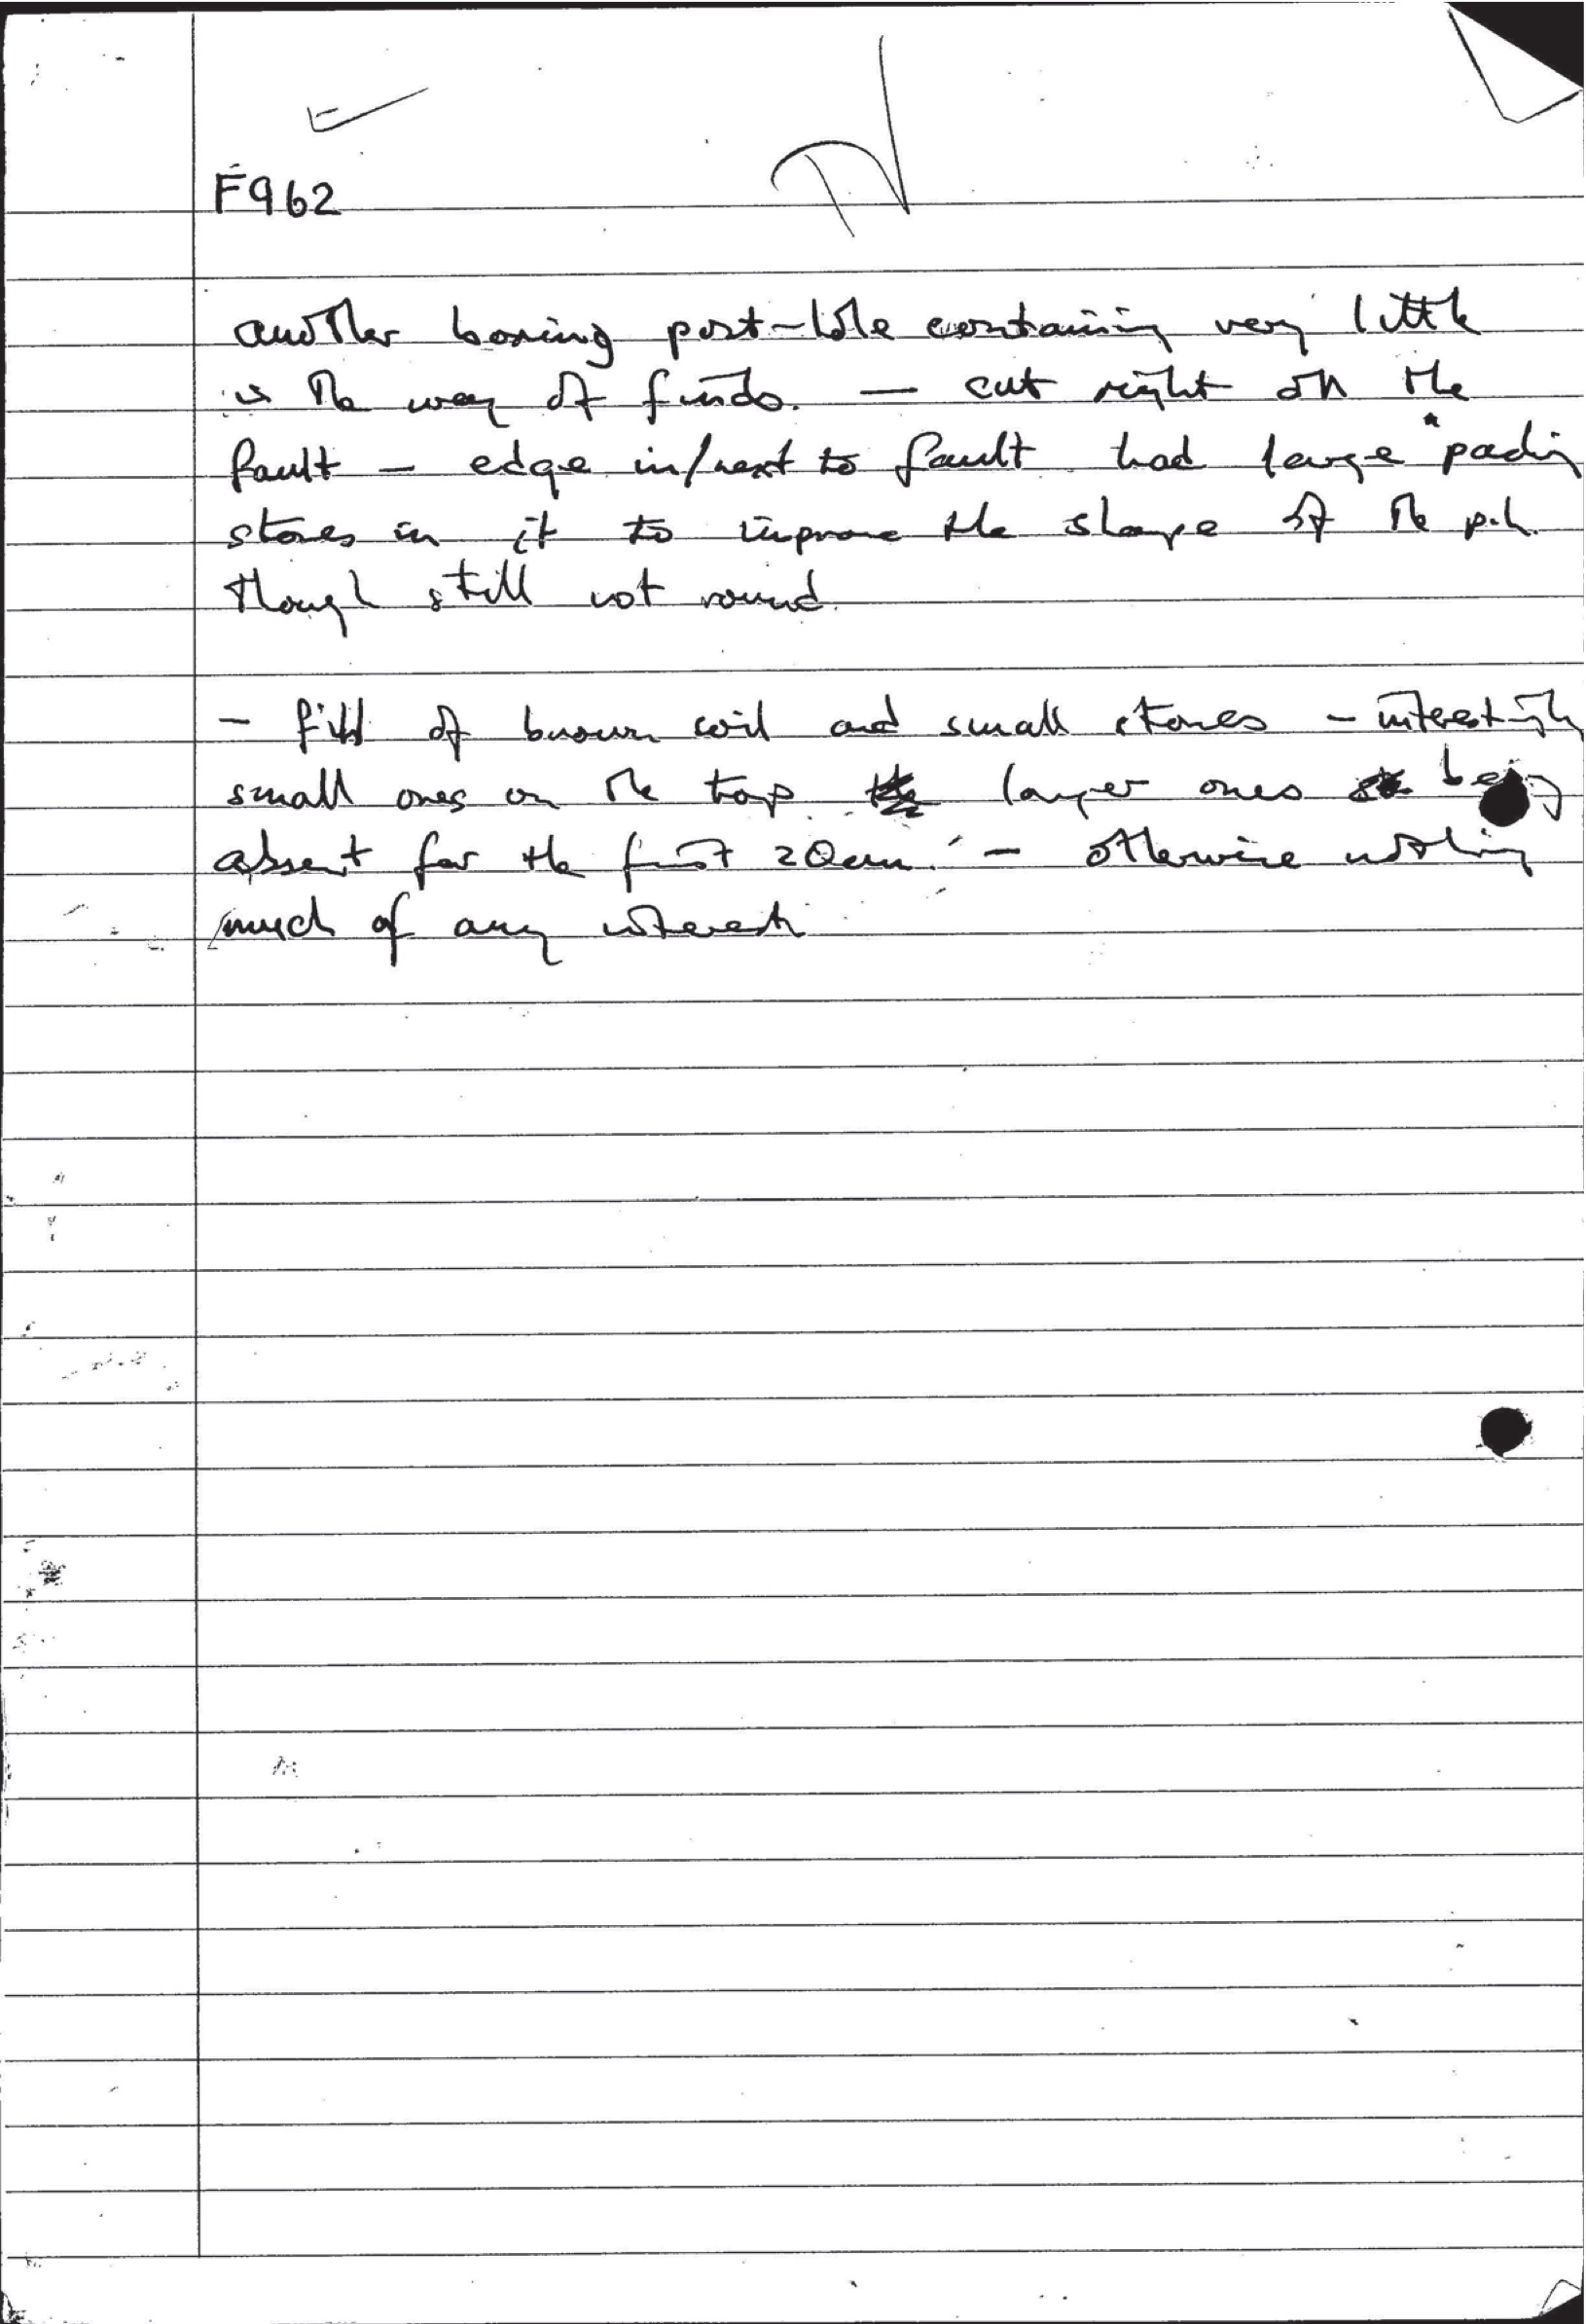 F962
another boring post-hole containing very little
in the way of finds. — cut right on the
fault — edge in/next to fault had large packing
stones in it to improve the shape of the p.h.
though still not round.
- fill of brown soil and small stones - interestingly
small ones on the top larger ones being
absent for the first 20cm. - otherwise nothing
much of any interest